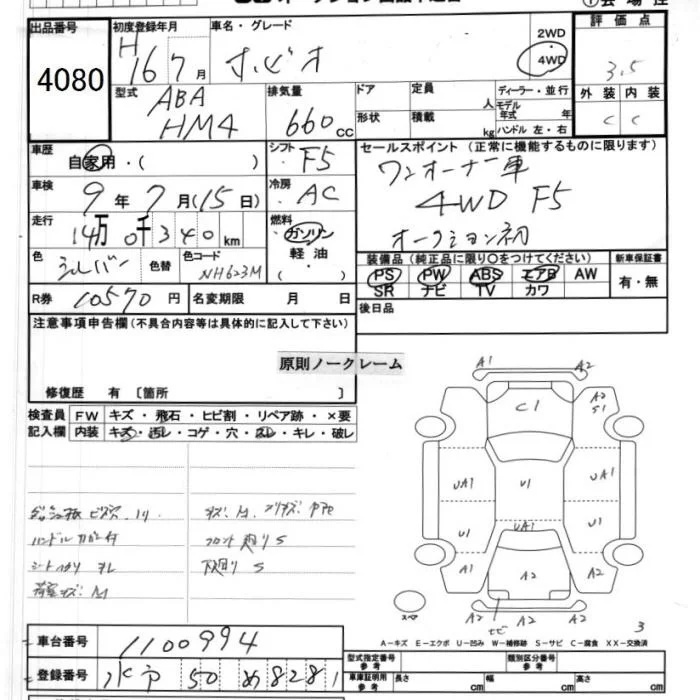 出品番号
4080
初度登録年月
H 16 7月
車名・グレード
ホビオ
2WD
4WD
評価点
3.5
外装 内装
C C
型式
ABA
HM4
排気量
660cc
ドア
形状
定員 人
積載 kg
ディーラー・並行
モデル年式 年
ハンドル 左・右
車歴
自家用・( )
シフト
F5
セールスポイント (正常に機能するものに限ります)
ワンオーナー車
4WD F5
オークション初
車検
9年7月(15日)
冷房
AC
走行
14万0千340km
燃料
ガソリン
軽油
・( )
色
シルバー
色替
色コード
NH623M
装備品(純正品に限り○をつけてください)
PS PW ABS エアB AW
SR ナビ TV カワ
新車保証書
有・無
R券 10570円
名変期限 月 日
後日品
注意事項申告欄(不具合内容等は具体的に記入して下さい)
原則ノークレーム
修復歴 有 〔箇所 〕
検査員記入欄
FW キズ・飛石・ヒビ割・リペア跡・×要
内装 キズ・汚レ・コゲ・穴・スレ・キレ・破レ
シート
キズ M
フロント廻りS
下廻りS
荷室キズM
A1 A2
C1
A2
S1
UA1 U1 UA1
U1 UA1 U1
A1 A2 A2
A2 A2
スペア
3
A-キズ E-エクボ U-凹み W-補修跡 S-サビ C-腐食 XX-交換済
車台番号
1100994
登録番号
水戸 50 め 8281
型式指定番号
参考
類別区分番号
参考
車庫証明用
参考
長さ cm
幅 cm
高さ cm